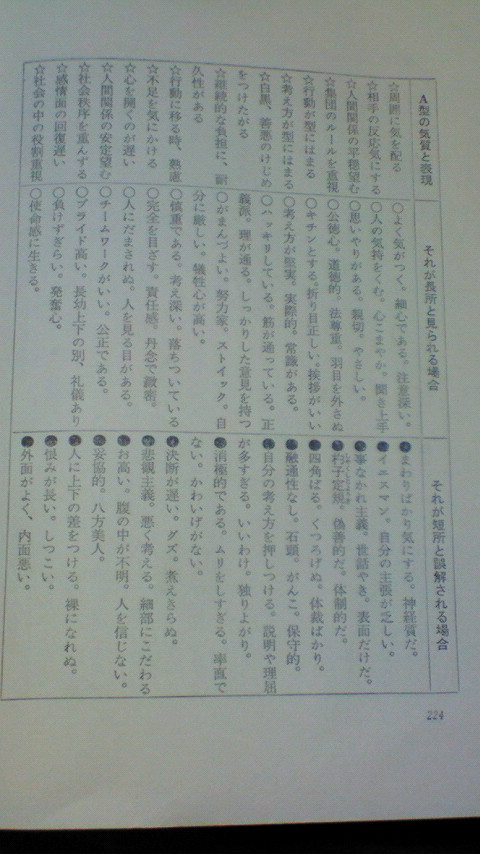 A型の気質と表現
☆周囲に気を配る
☆相手の反応気にする
☆人間関係の平穏望む
☆集団のルールを重視
☆行動が型にはまる
☆考え方が型にはまる
☆白黒、善悪のけじめ
をつけたがる
☆継続的な負担に、耐
久性がある
☆行動に移る時、熟慮
☆不足を気にかける
☆心を開くのが遅い
☆人間関係の安定望む
☆社会秩序を重んずる
☆感情面の回復遅い
☆社会の中の役割重視
それが長所と見られる場合
○よく気がつく。細心である。注意深い。
○人の気持をくむ。心こまやか。聞き上手
○思いやりがある。親切。やさしい。
○公徳心。道徳的。法尊重。羽目を外さぬ
○キチンとする。折り目正しい。挨拶がいい
○考え方が堅実。実際的。常識がある。
○ハッキリしている。筋が通っている。正
義派。理が通る。しっかりした意見を持つ
○がまんづよい。努力家。ストイック。自
分に厳しい。犠牲心が高い。
○慎重である。考え深い。落ちついている
○完全を目ざす。責任感。丹念で緻密。
○人にだまされぬ。人を見る目がある。
○チームワークがいい。公正である。
○プライド高い。長幼上下の別、礼儀あり
○負けずぎらい。発奮心。
○使命感に生きる。
それが短所と誤解される場合
●まわりばかり気にする。神経質だ。
●イエスマン。自分の主張が乏しい。
●事なかれ主義。世話やき。表面だけだ。
●杓子定規。偽善的だ。体制的だ。
●四角ばる。くつろげぬ。体裁ばかり。
●融通性なし。石頭。がんこ。保守的。
●自分の考え方を押しつける。説明や理屈
が多すぎる。いいわけ。独りよがり。
●消極的である。ムリをしすぎる。率直で
ない。かわいげがない。
●決断が遅い。グズ。煮えきらぬ。
●悲観主義。悪く考える。細部にこだわる
●お高い。腹の中が不明。人を信じない。
●妥協的。八方美人。
●人に上下の差をつける。裸になれぬ。
●恨みが長い。しつこい。
●外面がよく、内面悪い。
224